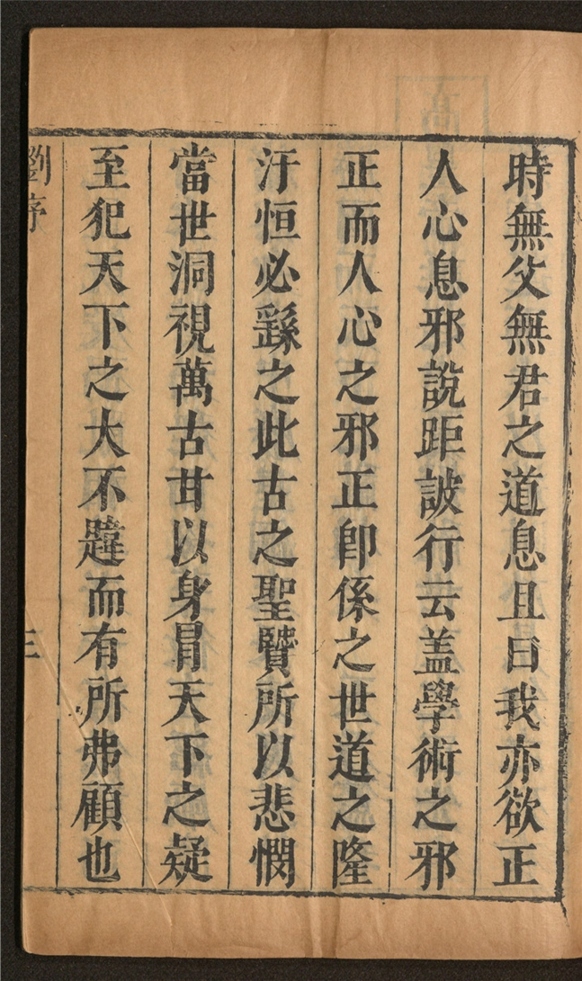 時無父無君之道息且曰我亦欲正
人心息邪說距詖行云蓋學術之邪
正而人心之邪正卽係之世道之隆
汙恒必繇之此古之聖賢所以悲憫
當世洞視萬古甘以身冒天下之疑
至犯天下之大不韙而有所弗顧也
劉序
三